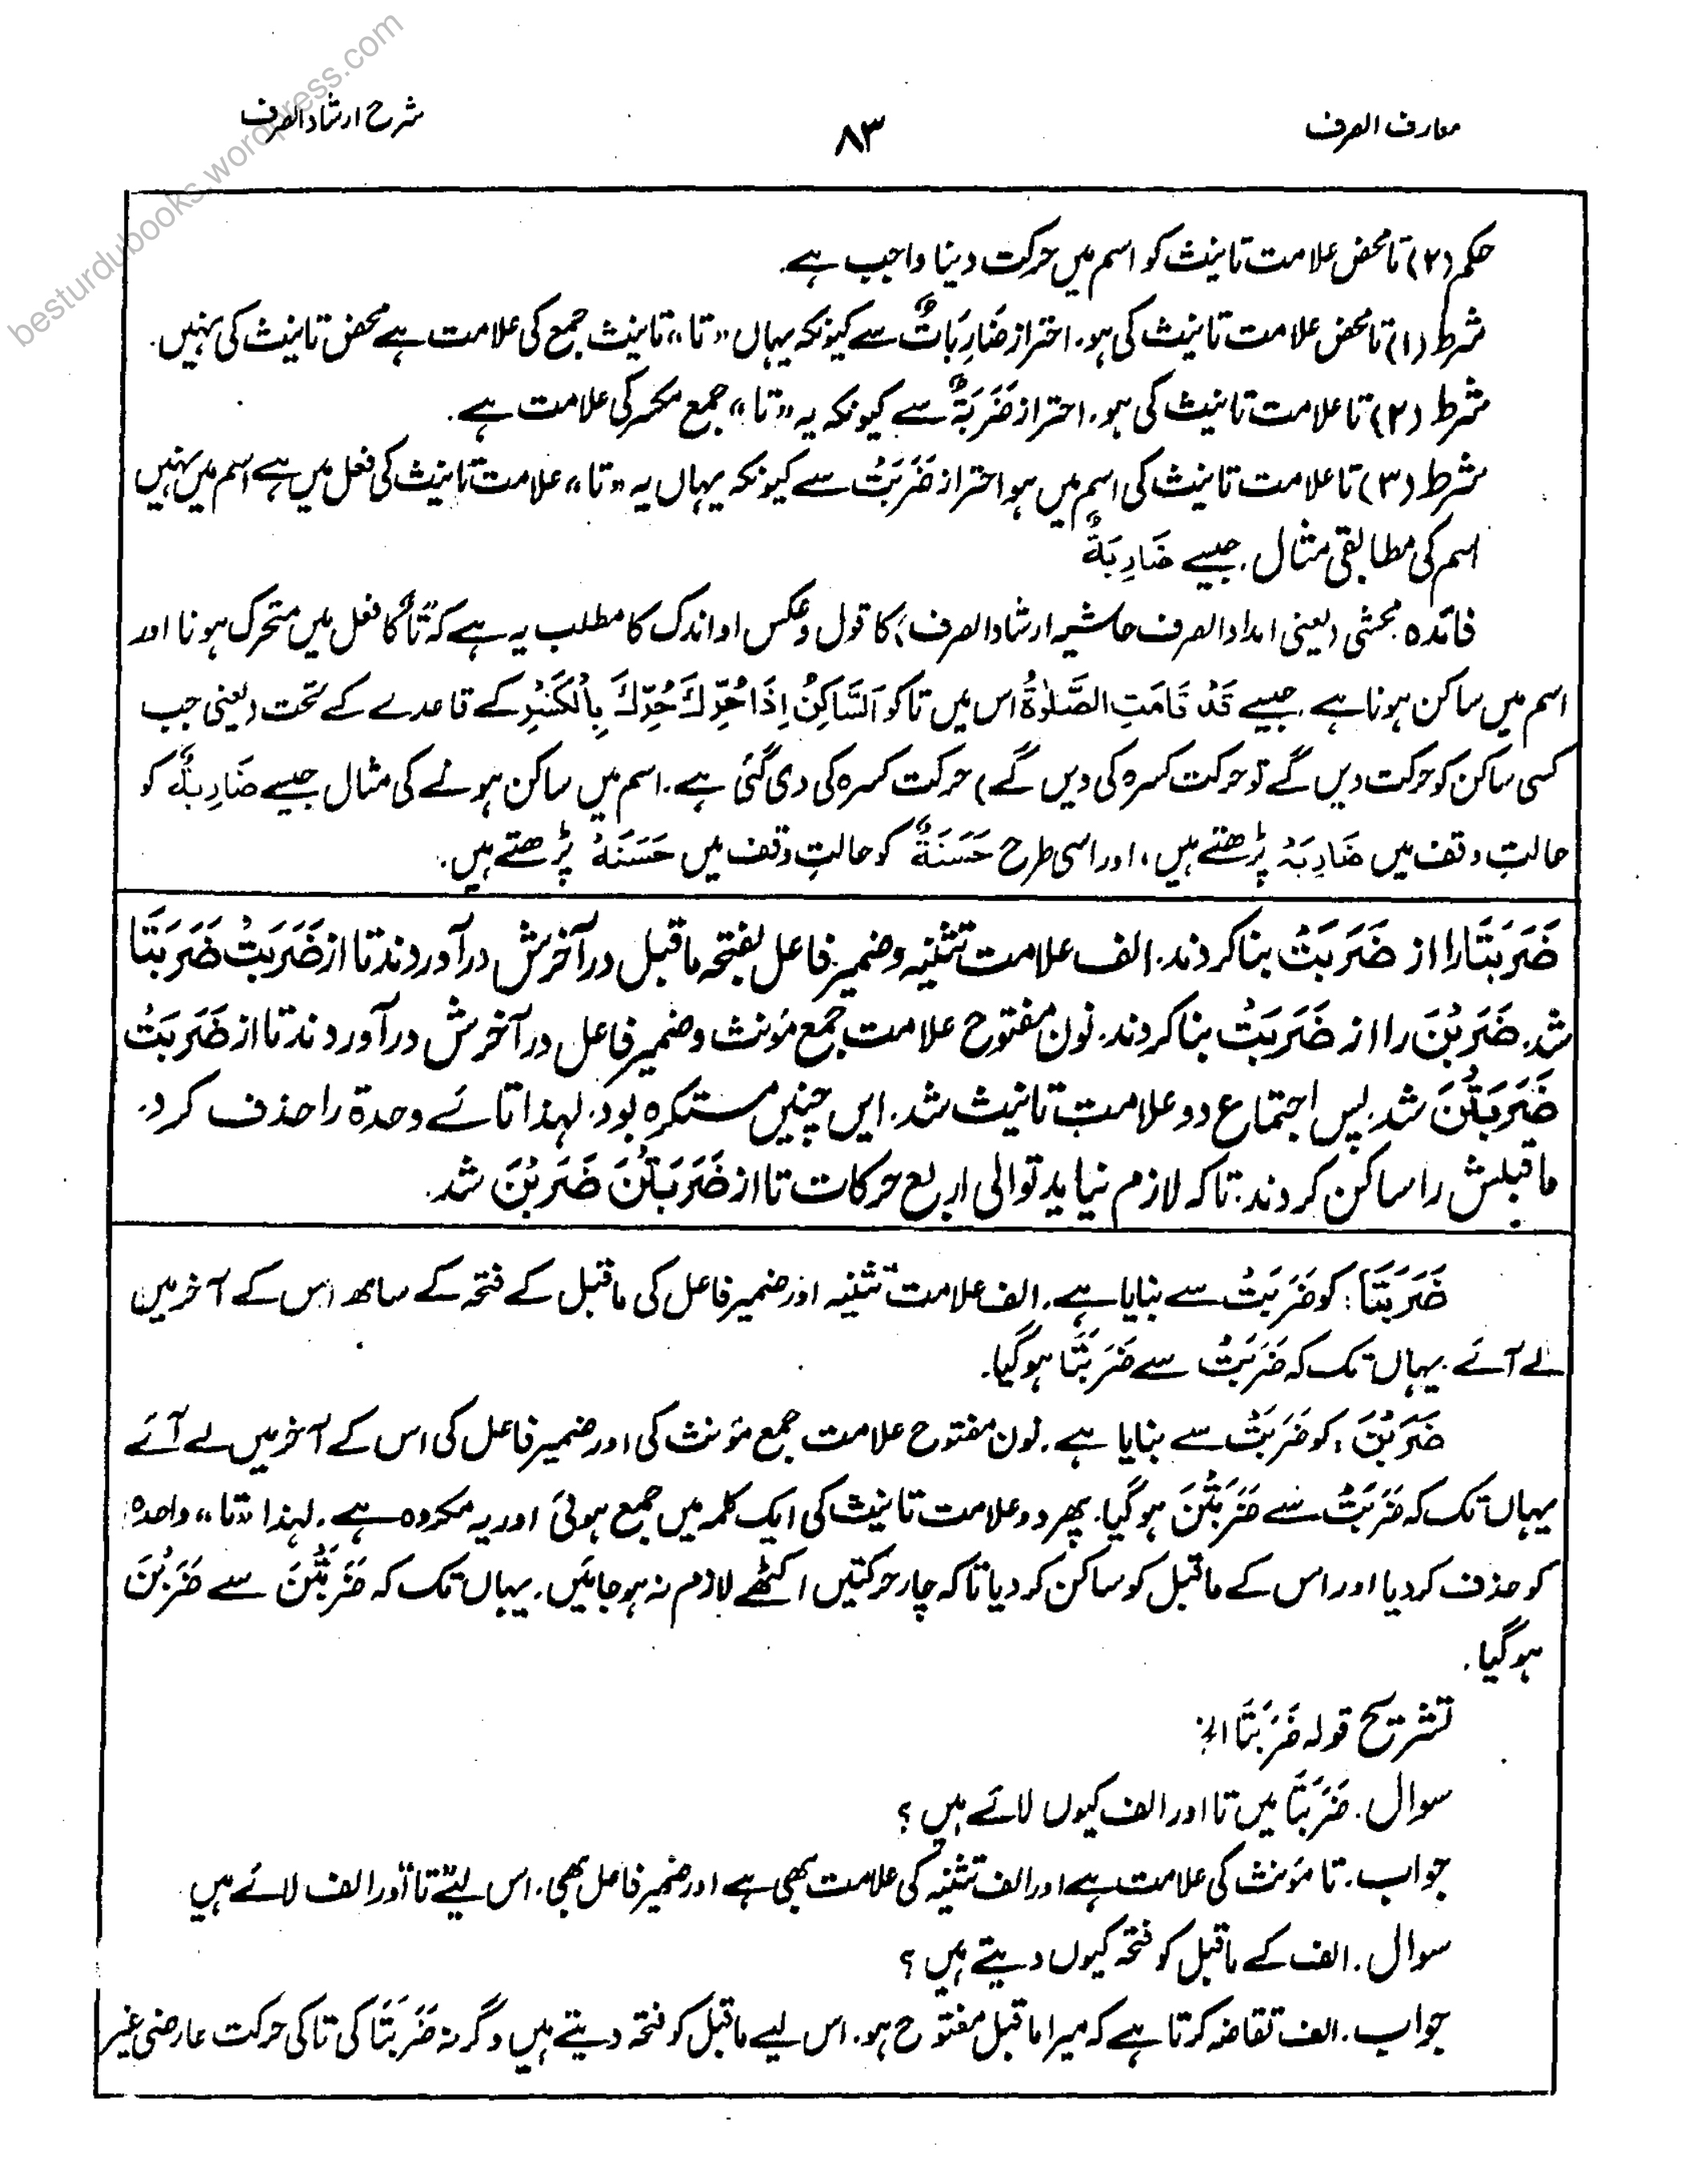 معارف الصرف
۸۳
شرح ارشاد الصرف
besturdubooks.wordpress.com
حکم (۲) تا محض علامت تانیث کو اسم میں حرکت دینا واجب ہے۔
شرط (۱) تا محض علامت تانیث کی ہو۔ احتراز ضَارِبَاتٌ سے کیونکہ یہاں "تا" تانیث جمع کی علامت ہے محض تانیث کی نہیں۔
شرط (۲) تا علامت تانیث کی ہو۔ احتراز ضَرَبَةٌ سے کیونکہ یہ "تا" جمع مکسر کی علامت ہے۔
شرط (۳) تا علامت تانیث کی اسم میں ہو احتراز ضَرَبَتْ سے کیونکہ یہاں یہ "تا" علامت تانیث کی فعل میں ہے اسم میں نہیں
اسم کی مطابقی مثال۔ جیسے ضَارِبَةٌ
فائدہ۔ محشی (یعنی امداد الصرف حاشیہ ارشاد الصرف) کا قول وعکس او اندک کا مطلب یہ ہے کہ "تا" کا فعل میں متحرک ہونا اور
اسم میں ساکن ہونا ہے۔ جیسے قَدْ قَامَتِ الصَّلٰوةُ اس میں تا کو اَلسَّاکِنُ اِذَا حُرِّكَ حُرِّكَ بِالْکَسْرِ کے قاعدے کے تحت (یعنی جب
کسی ساکن کو حرکت دیں گے تو حرکت کسرہ کی دیں گے) حرکت کسرہ کی دی گئی ہے۔ اسم میں ساکن ہونے کی مثال جیسے ضَارِبَةٌ کو
حالتِ وقف میں ضَارِبَہْ پڑھتے ہیں، اور اسی طرح حَسَنَةٌ کو حالتِ وقف میں حَسَنَہْ پڑھتے ہیں۔
ضَرَبَتَا را از ضَرَبَتْ بنا کردند۔ الف علامت تثنیہ وضمیر فاعل بفتحہ ماقبل در آخرش درآوردند تا از ضَرَبَتْ ضَرَبَتَا
شد۔ ضَرَبْنَ را از ضَرَبَتْ بنا کردند۔ نون مفتوح علامت جمع مؤنث وضمیر فاعل در آخرش درآوردند تا از ضَرَبَتْ
ضَرَبَتْنَ شد۔ پس اجتماع دو علامت تانیث شد۔ ایں چنیں مستکرہ بود۔ لہذا تائے وحدۃ را حذف کرد۔
ماقبلش را ساکن کردند۔ تاکہ لازم نیاید توالی اربع حرکات تا از ضَرَبَتْنَ ضَرَبْنَ شد۔
ضَرَبَتَا: کو ضَرَبَتْ سے بنایا ہے۔ الف علامت تثنیہ اور ضمیر فاعل کی ماقبل کے فتحہ کے ساتھ اس کے آخر میں
لے آئے۔ یہاں تک کہ ضَرَبَتْ سے ضَرَبَتَا ہوگیا۔
ضَرَبْنَ: کو ضَرَبَتْ سے بنایا ہے۔ نون مفتوح علامت جمع مؤنث کی اور ضمیر فاعل کی اس کے آخر میں لے آئے
یہاں تک کہ ضَرَبَتْ سے ضَرَبَتْنَ ہوگیا۔ پھر دو علامت تانیث کی ایک کلمہ میں جمع ہوئی اور یہ مکروہ ہے۔ لہذا "تا" واحدہ
کو حذف کردیا اور اس کے ماقبل کو ساکن کردیا تاکہ چار حرکتیں اکٹھے لازم نہ ہوجائیں۔ یہاں تک کہ ضَرَبَتْنَ سے ضَرَبْنَ
ہوگیا۔
تشریح قولہ ضَرَبَتَا الخ
سوال۔ ضَرَبَتَا میں تا اور الف کیوں لائے ہیں؟
جواب۔ تا مؤنث کی علامت ہے اور الف تثنیہ کی علامت بھی ہے اور ضمیر فاعل بھی۔ اس لیے تا اور الف لائے ہیں
سوال۔ الف کے ماقبل کو فتحہ کیوں دیتے ہیں؟
جواب۔ الف تقاضہ کرتا ہے کہ میرا ماقبل مفتوح ہو۔ اس لیے ماقبل کو فتحہ دیتے ہیں وگرنہ ضَرَبَتَا کی تا کی حرکت عارضی غیر